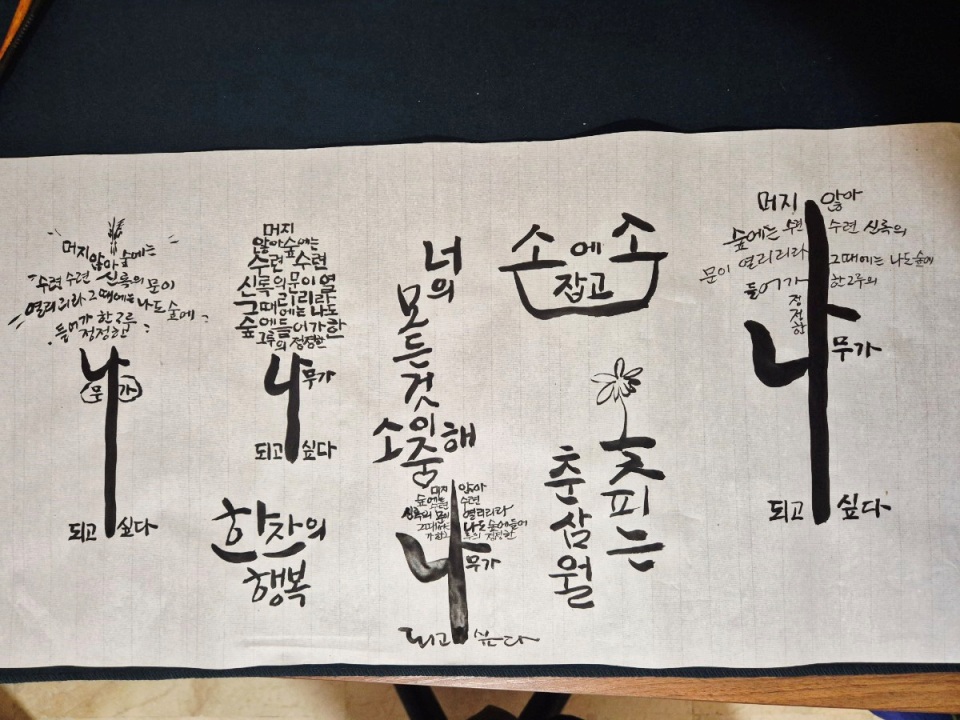 머지
않아 숲에는
수련 수련 신록의 문이
열리리라 그때에는 나도 숲에
들어가 한그루
정정한
나
무가
되고 싶다
머지
않아 숲에는
수련 수련
신록의 문이 열
리리라
그때에는 나도
숲에 들어가 한
그루의 정정한
나무가
되고 싶다
한잔의
행복
너의
모든것
이
소중해
머지 않아
숲에는 수련
신록의 문이 열리리라
그때에는 나도 숲에 들어
가 한그루의 정정한
나무가
되고 싶다
손에 손
잡고
꽃피는
춘삼월
머지 않아
숲에는 수련 수련 신록의
문이 열리리라 그때에는 나도 숲에
들어가 한그루의
정정한
나무가
되고 싶다